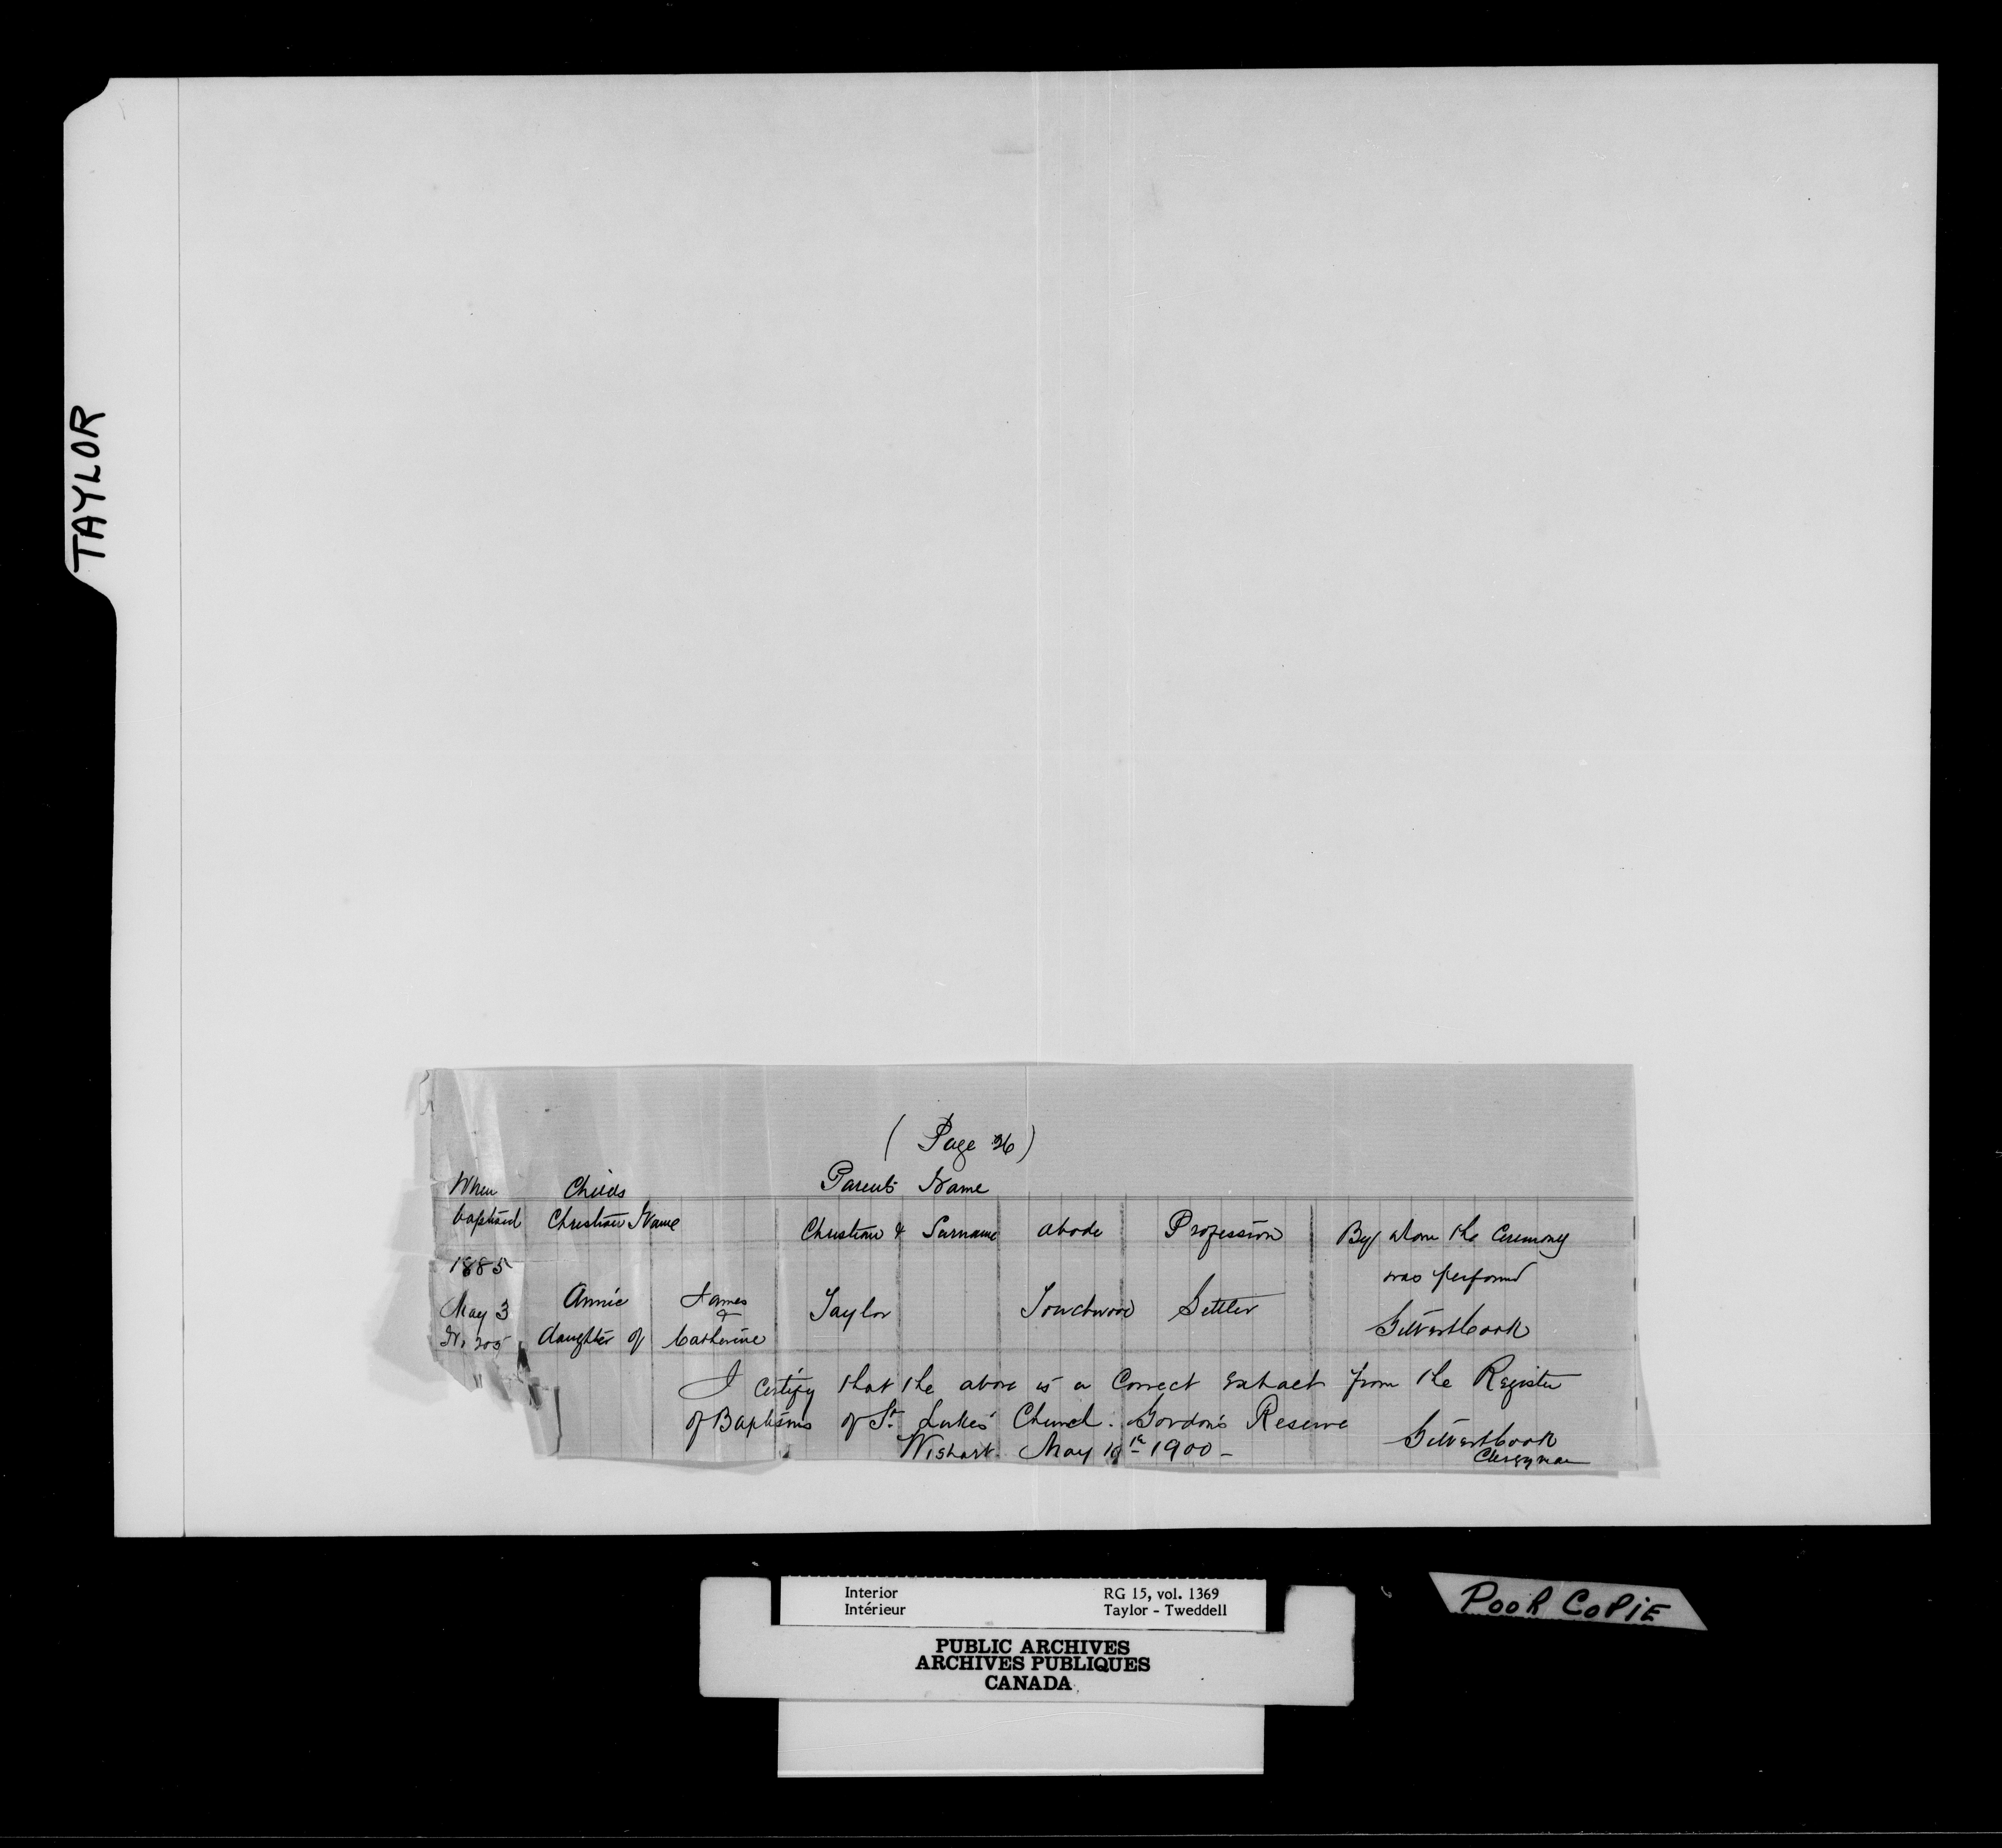 TAYLOR
( Page 26 )
When Childs Parents Name
baptised Christian Name Christian & Surname abode Profession By whom the Ceremony
1885 was perform'd
May 3 Annie James & Taylor Touchwood Settler
No 205 daughter of Catherine Gilbert Cook
I certify that the above is a Correct Extract from the Register
of Baptisms of St. Lukes' Church. Gordon's Reserve Gilbert Cook
Wishart. May 1900 - Clergyman
Interior RG 15, vol. 1369
Intérieur Taylor - Tweddell
PUBLIC ARCHIVES
ARCHIVES PUBLIQUES
CANADA
POOR COPIE